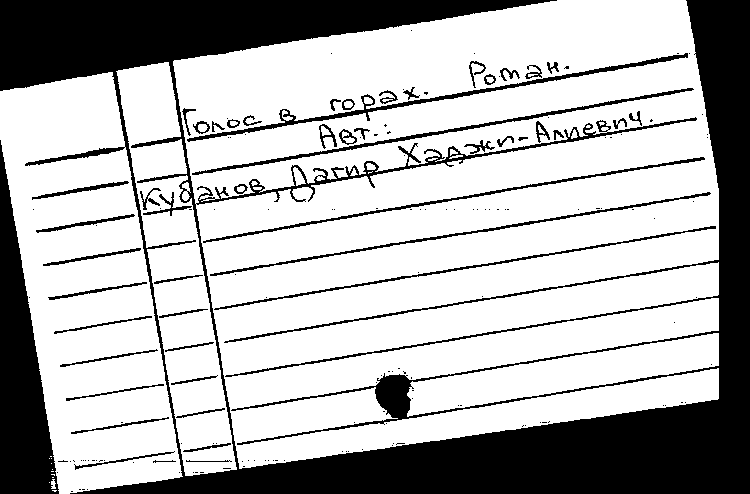 Голос в горах. Роман.
Авт.:
Кубанов, Дагир Хаджи-Алиевич.